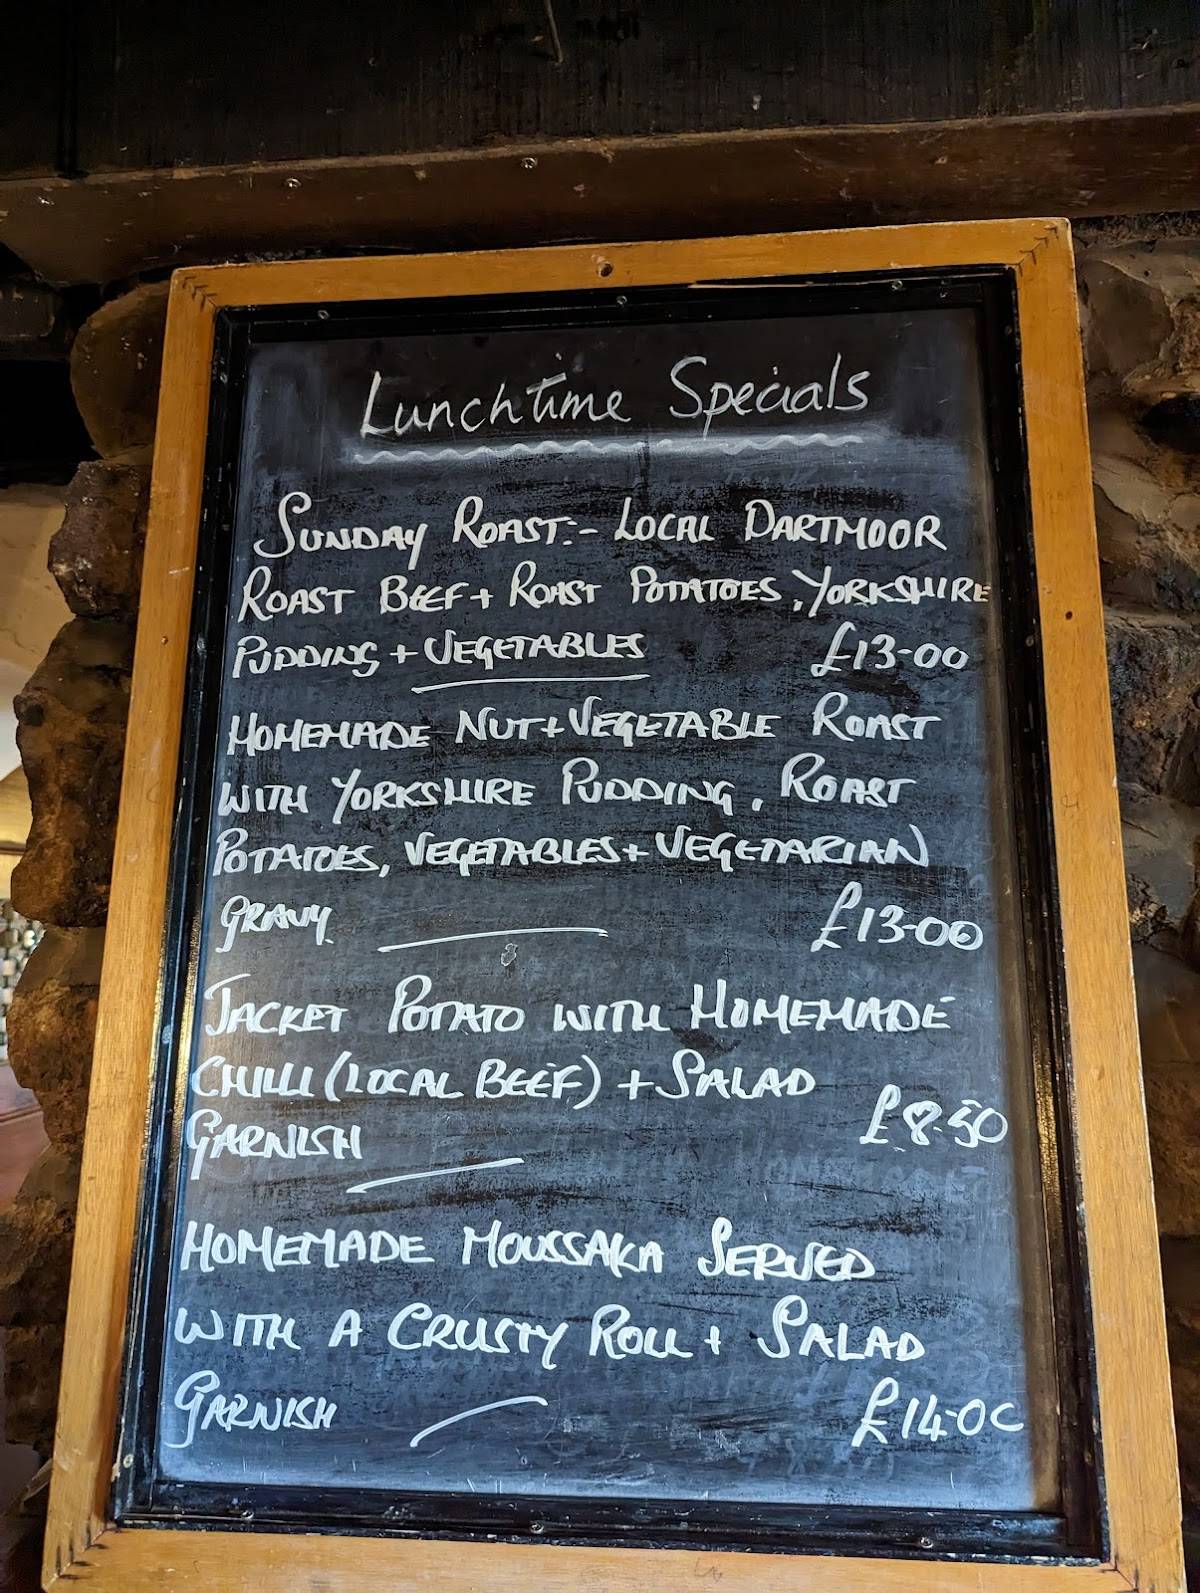 Lunchtime Specials
SUNDAY ROAST:- LOCAL DARTMOOR
ROAST BEEF + ROAST POTATOES, YORKSHIRE
PUDDING + VEGETABLES £13-00
HOMEMADE NUT + VEGETABLE ROAST
WITH YORKSHIRE PUDDING, ROAST
POTATOES, VEGETABLES + VEGETARIAN
GRAVY. £13-00
JACKET POTATO WITH HOMEMADE
CHILLI (LOCAL BEEF) + SALAD
GARNISH £8-50
HOMEMADE MOUSSAKA SERVED
WITH A CRUSTY ROLL + SALAD
GARNISH £14-00